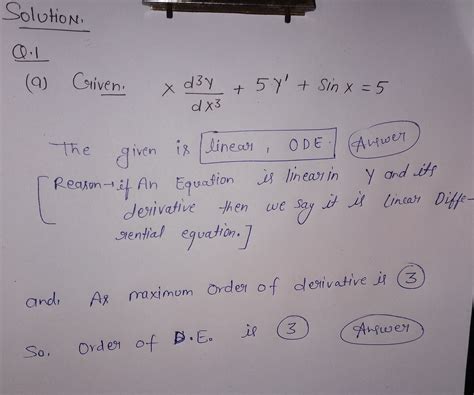 Solution.
Q.1
(a) Given. x d³y/dx³ + 5y' + sin x = 5
The given is linear, ODE. Answer
[Reason → if An Equation is linear in y and its
derivative then we say it is linear Diffe-
rential equation.]
and, As maximum order of derivative is 3
So, order of D.E. is 3 Answer